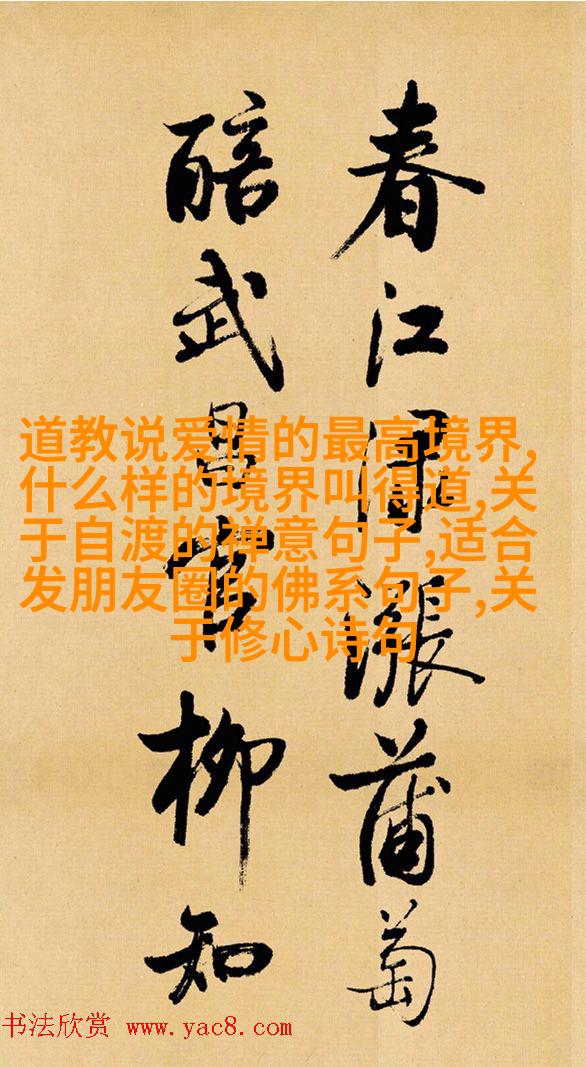 春江淥漲蒲萄
醅武昌官柳知
道教说爱情的最高境界,
什么样的境界叫得道,关
于自渡的禅意句子,适合
发朋友圈的佛系句子,关
于修心诗句
书法欣赏 www.yac8.com